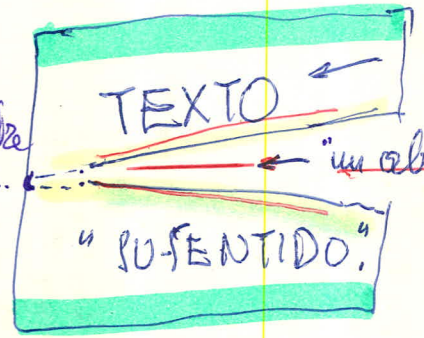 TEXTO
"un
" SU SENTIDO."